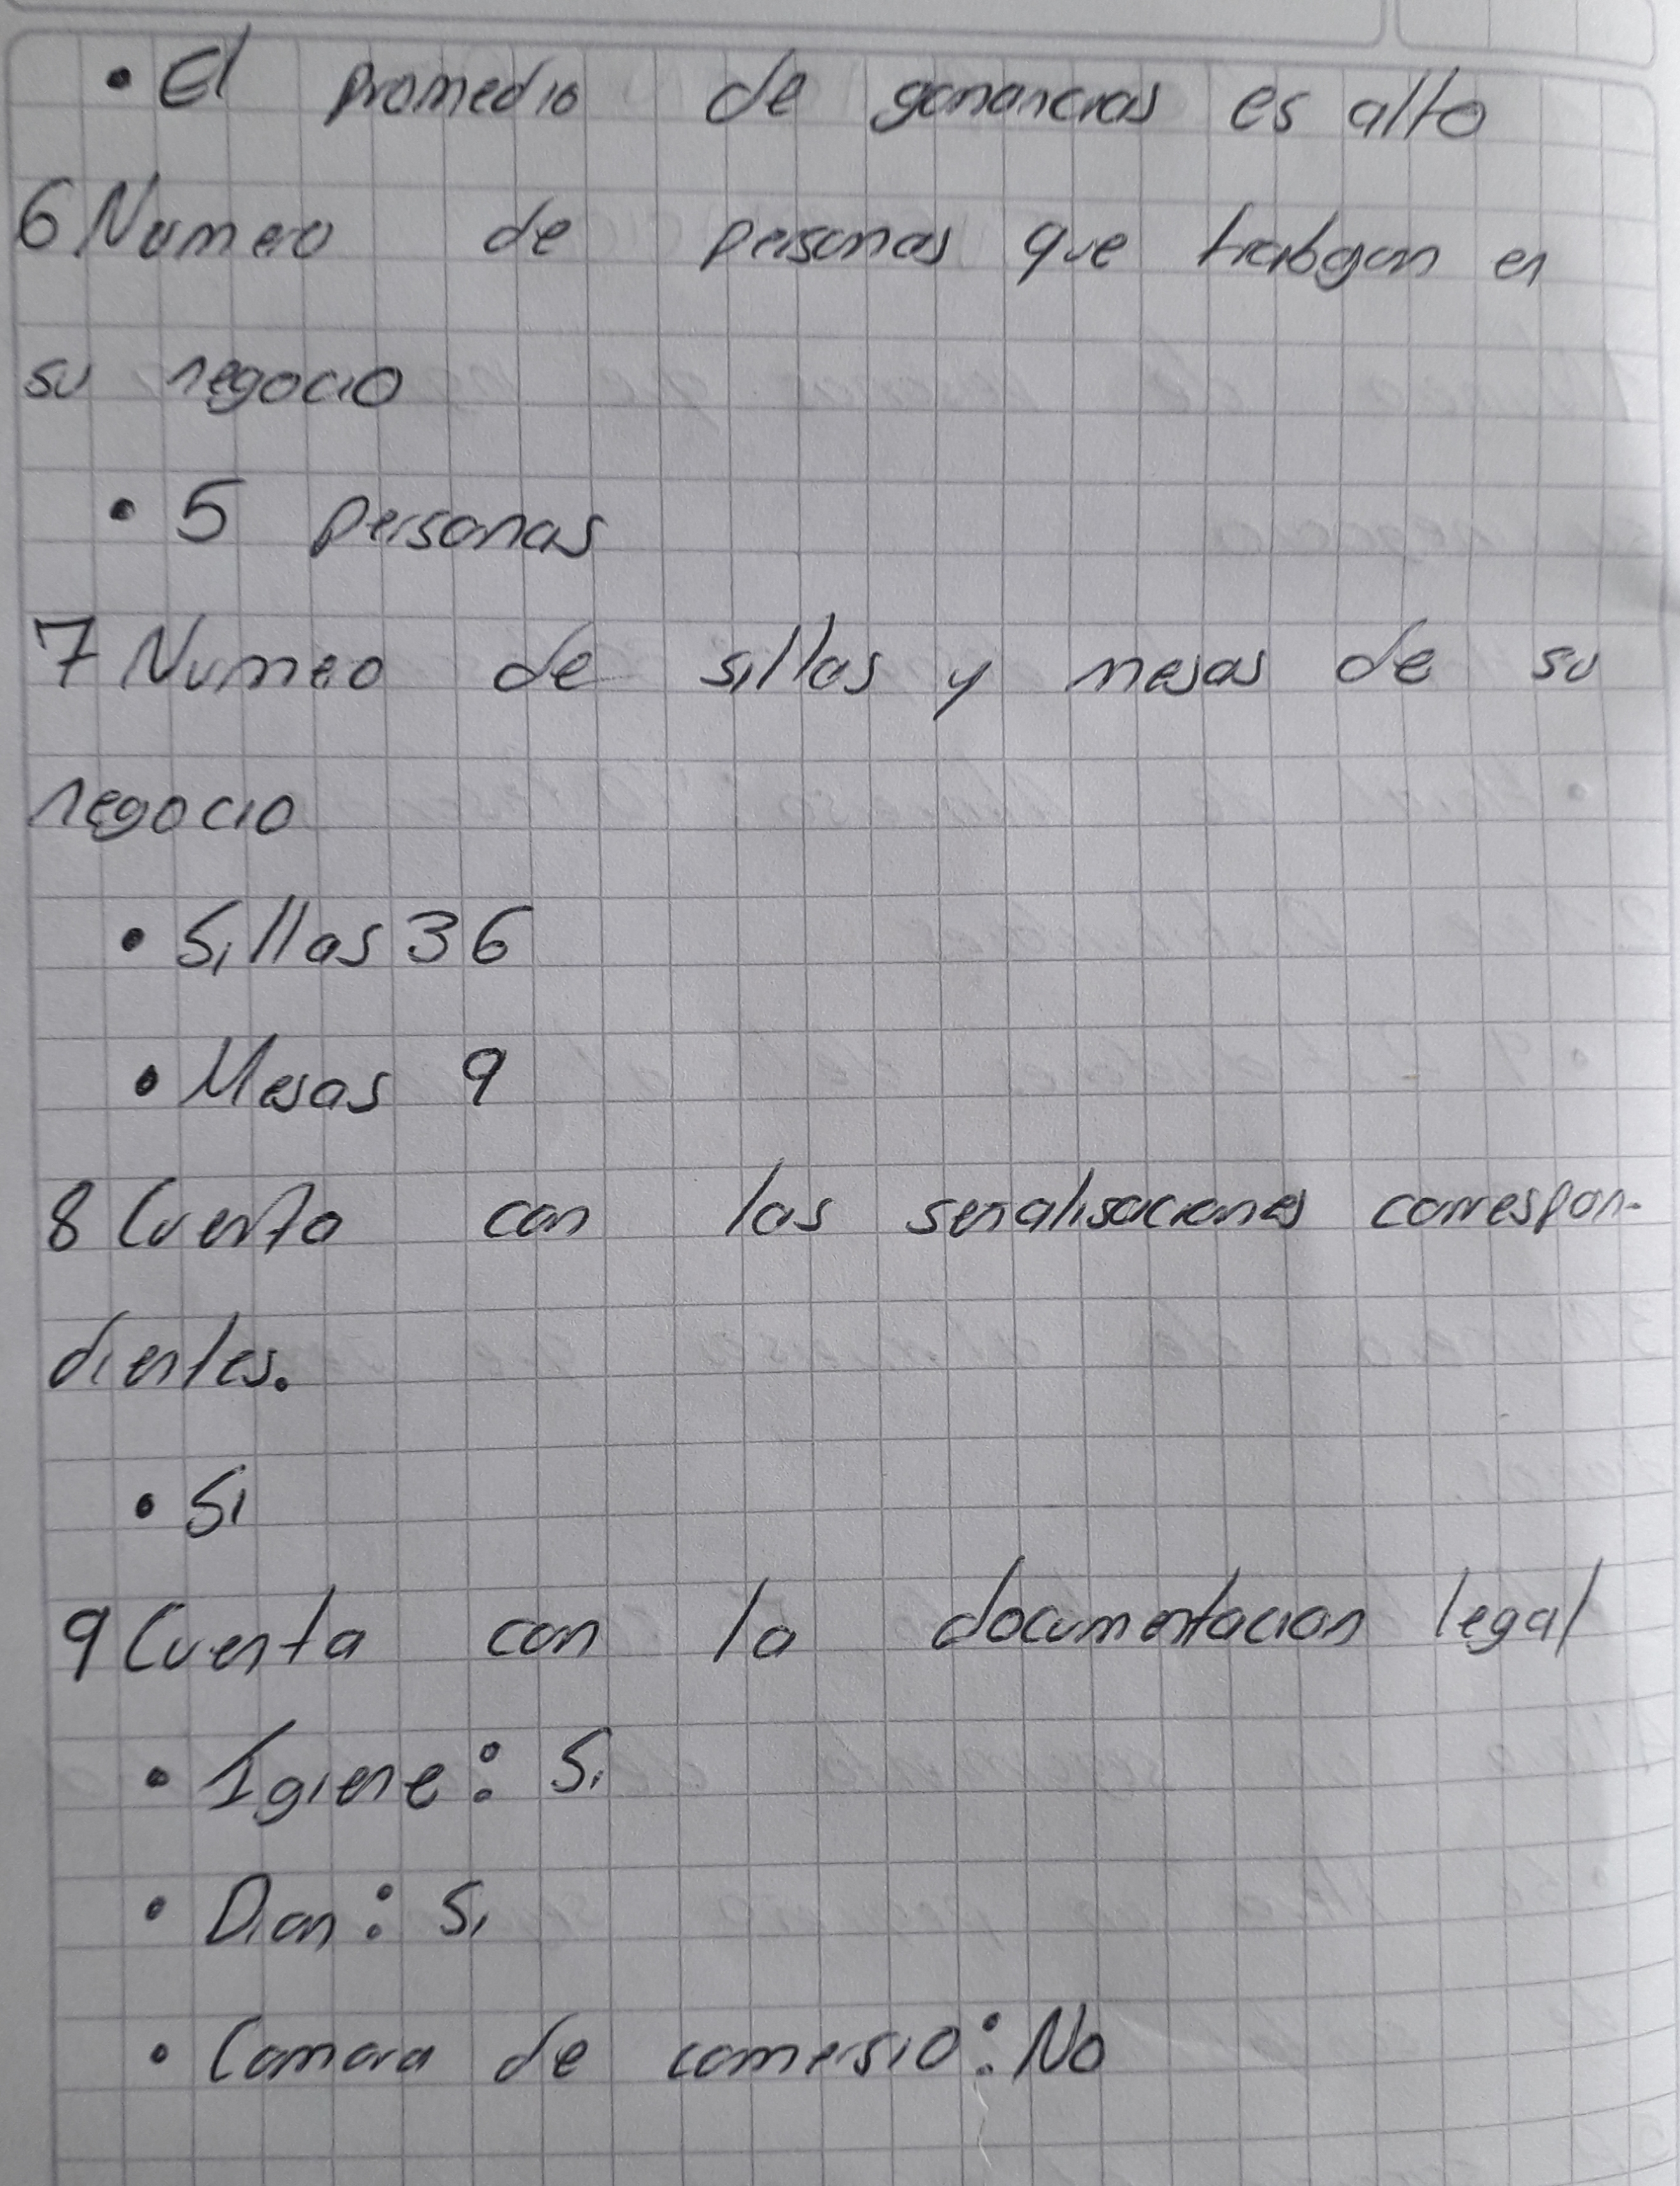 • El promedio de ganancias es alto
6 Numero de personas que trabajan en
su negocio
• 5 personas
7 Numero de sillas y mesas de su
negocio
• Sillas 36
• Mesas 9
8 Cuenta con las senalisaciones correspon-
dientes.
• Si
9 Cuenta con la documentacion legal
• Igiene: Si
• Dian: Si
• Camara de comersio: No